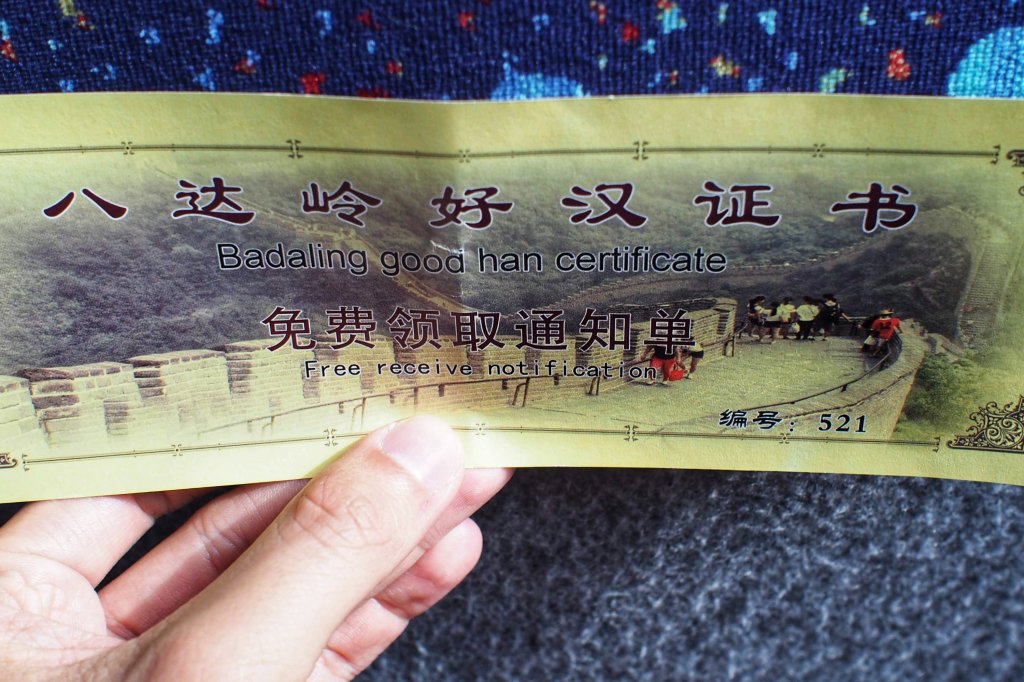 八达岭好汉证书
Badaling good han certificate
免费领取通知单
Free receive notification
编号：521